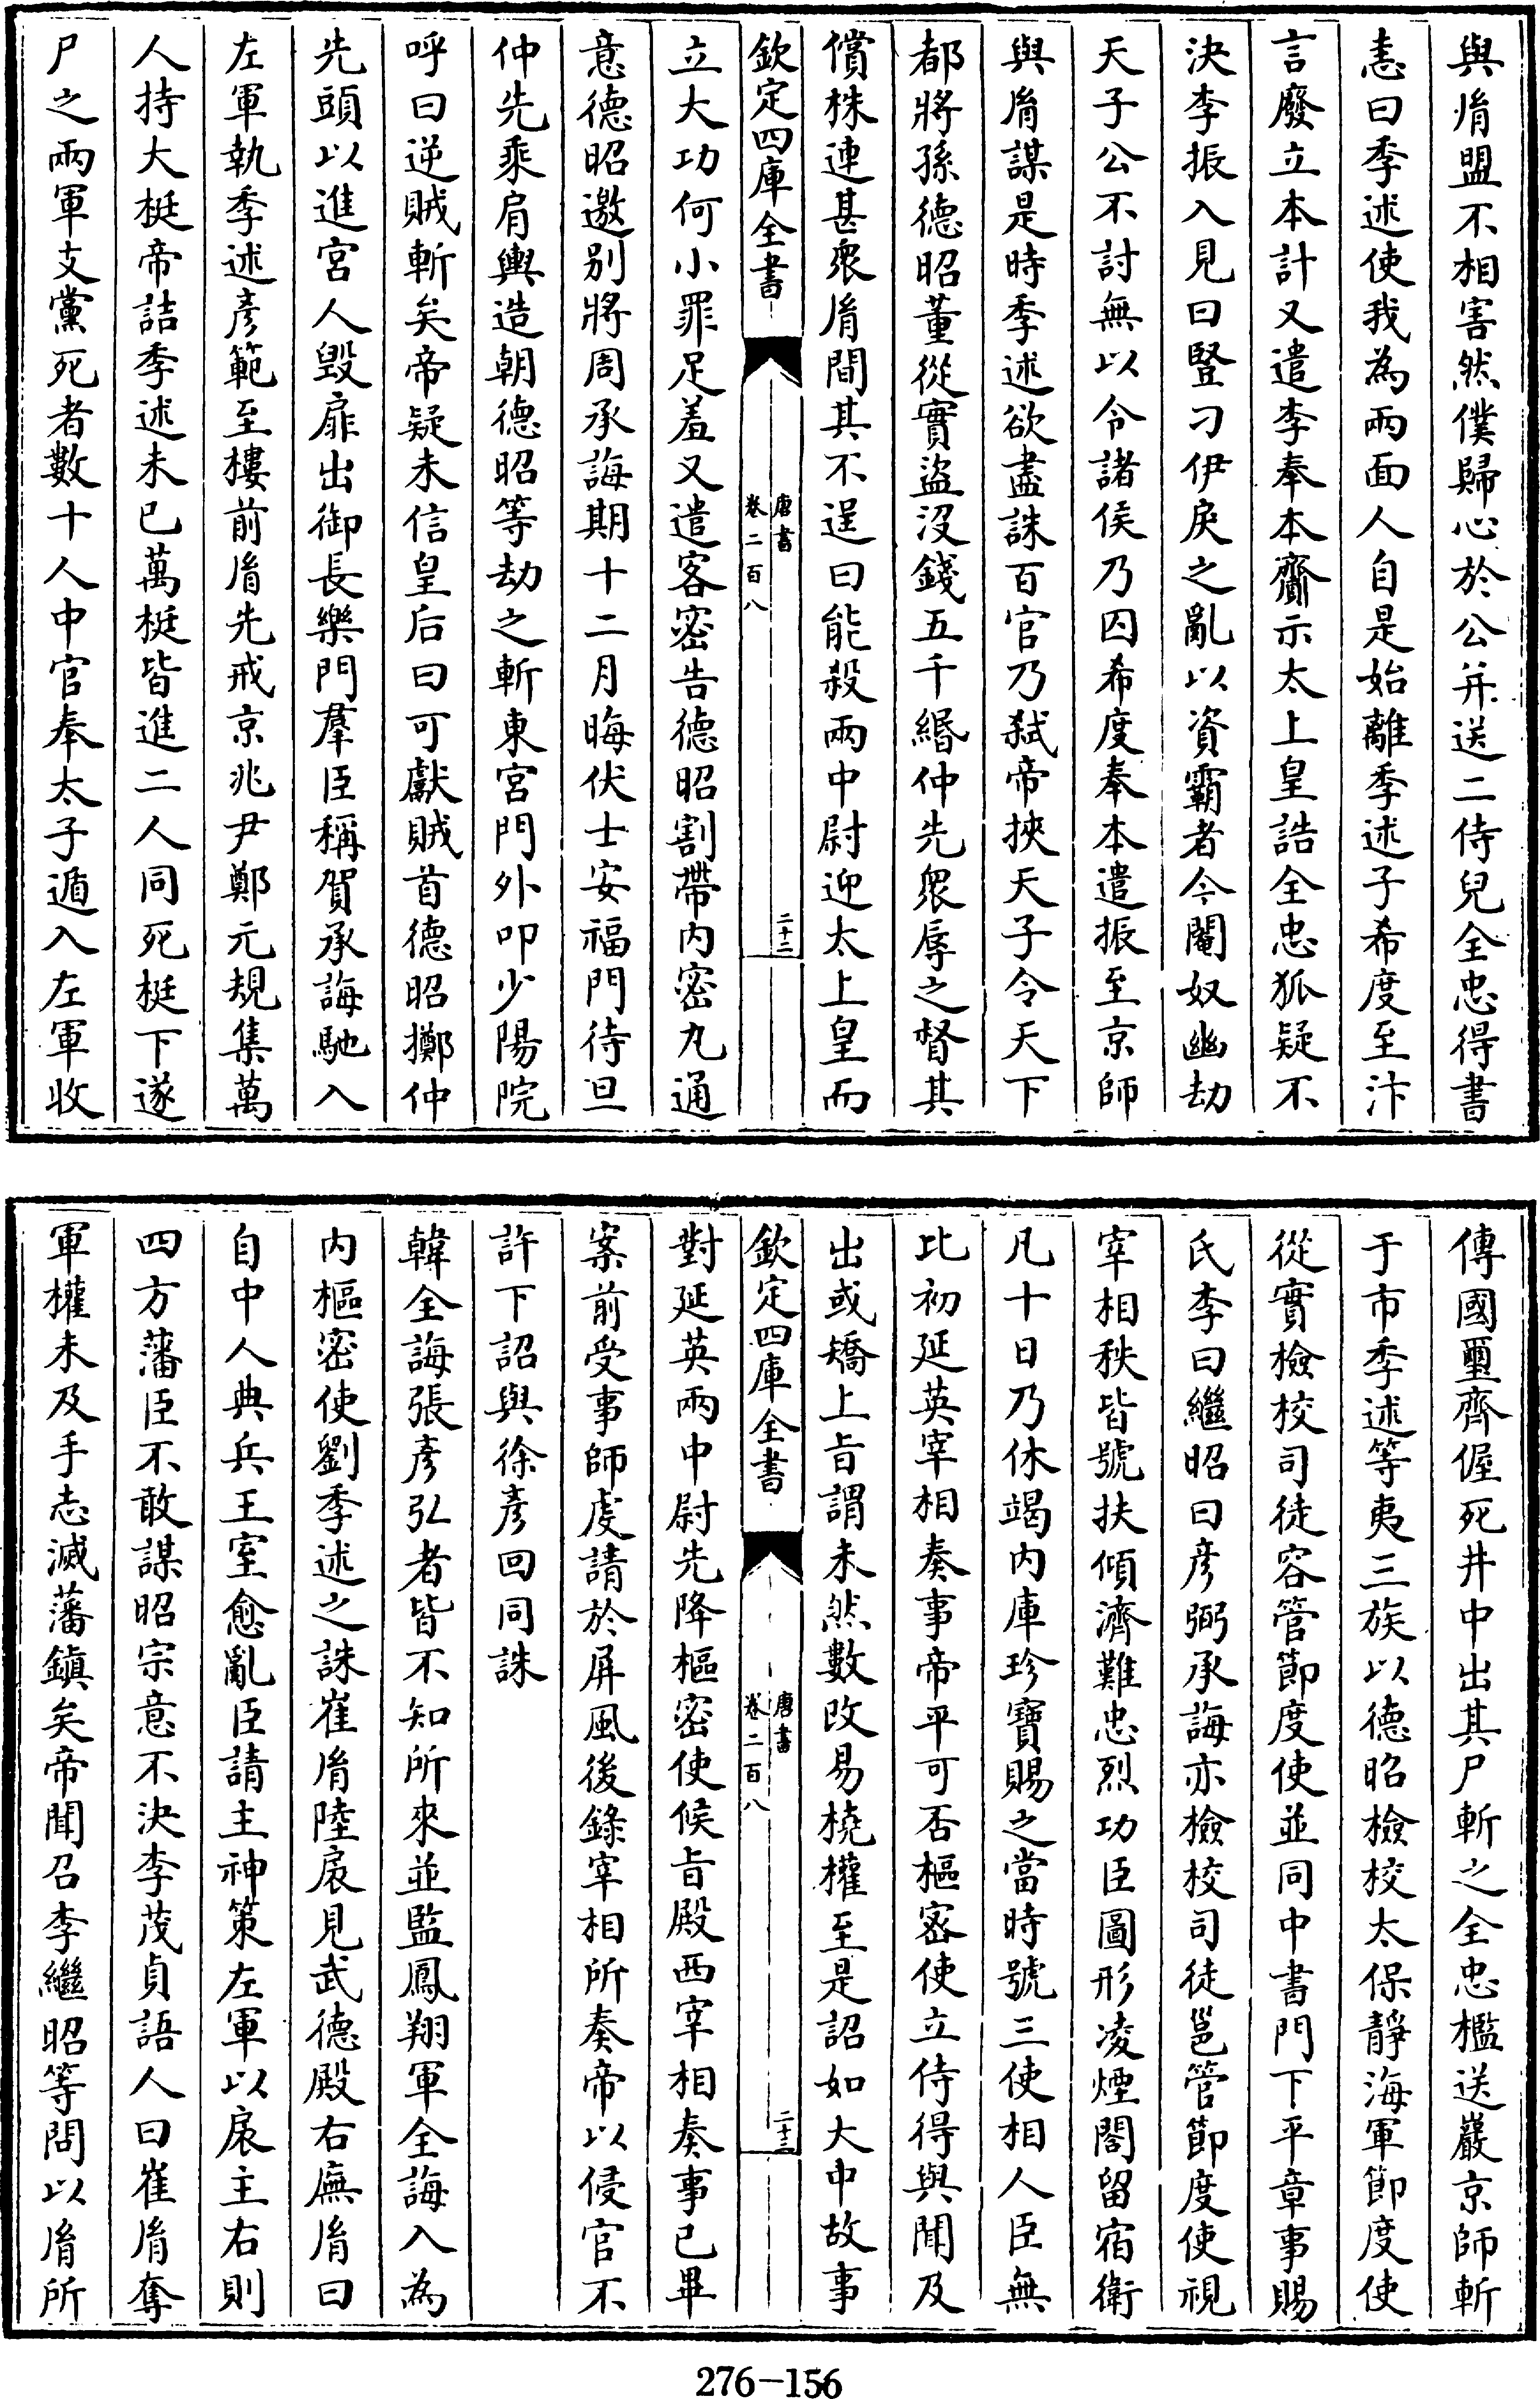 與𦙍盟不相害然僕歸心於公并送二侍兒全忠得書
恚曰季述使我為兩面人自是始離季述子希度至汴
言廢立本計又遣李奉本齎示太上皇誥全忠狐疑不
決李振入見曰豎刁伊戾之亂以資霸者今閹奴幽劫
天子公不討無以令諸侯乃囚希度奉本遣振至京師
與𦙍謀是時季述欲盡誅百官乃弑帝挾天子令天下
都將孫德昭董從實盜沒錢五千緡仲先衆辱之督其
償株連甚衆𦙍間其不逞曰能殺兩中尉迎太上皇而
欽定四庫全書
唐書
卷二百八
二十二
立大功何小罪足羞又遣客密告德昭割帶内密丸通
意德昭邀别將周承誨期十二月晦伏士安福門待旦
仲先乘肩輿造朝德昭等劫之斬東宮門外叩少陽院
呼曰逆賊斬矣帝疑未信皇后曰可獻賊首德昭擲仲
先頭以進宮人毁扉出御長樂門羣臣稱賀承誨馳入
左軍執季述彦範至樓前𦙍先戒京兆尹鄭元規集萬
人持大梃帝詰季述未已萬梃皆進二人同死梃下遂
尸之兩軍支黨死者數十人中官奉太子遁入左軍收
傳國璽齊偓死井中出其尸斬之全忠檻送巖京師斬
于市季述等夷三族以德昭檢校太保靜海軍節度使
從實檢校司徒容管節度使並同中書門下平章事賜
氏李曰繼昭曰彦弼承誨亦檢校司徒邕管節度使視
宰相秩皆號扶傾濟難忠烈功臣圖形凌煙閣留宿衛
凡十日乃休竭内庫珍寶賜之當時號三使相人臣無
比初延英宰相奏事帝平可否樞密使立侍得與聞及
出或矯上旨謂未然數改易橈權至是詔如大中故事
欽定四庫全書
唐書
卷二百八
二十三
對延英兩中尉先降樞密使候旨殿西宰相奏事已畢
案前受事師虔請於屏風後錄宰相所奏帝以侵官不
許下詔與徐彦回同誅
韓全誨張彦弘者皆不知所來並監鳳翔軍全誨入為
内樞密使劉季述之誅崔𦙍陸扆見武德殿右廡𦙍曰
自中人典兵王室愈亂臣請主神策左軍以扆主右則
四方藩臣不敢謀昭宗意不決李茂貞語人曰崔𦙍奪
軍權未及手志滅藩鎮矣帝聞召李繼昭等問以𦙍所
276-156